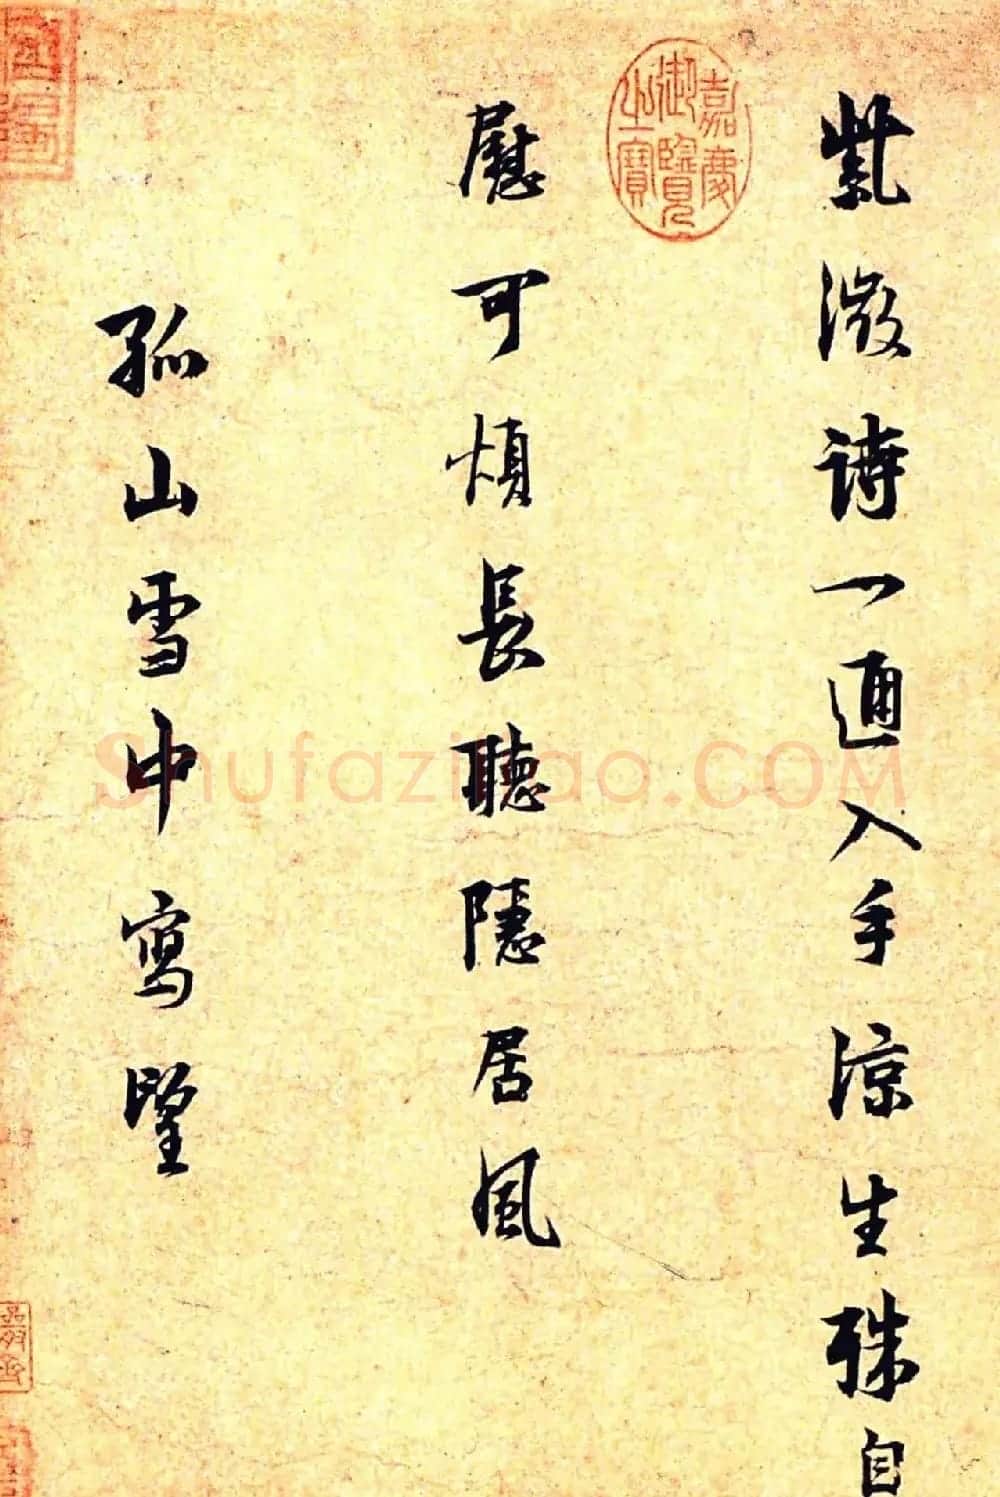 紫微詩一通入手涼生殊自
慰可煩長聽隱居風
孤山雪中寫望
嘉慶御覽之寶
shufaziliao.COM